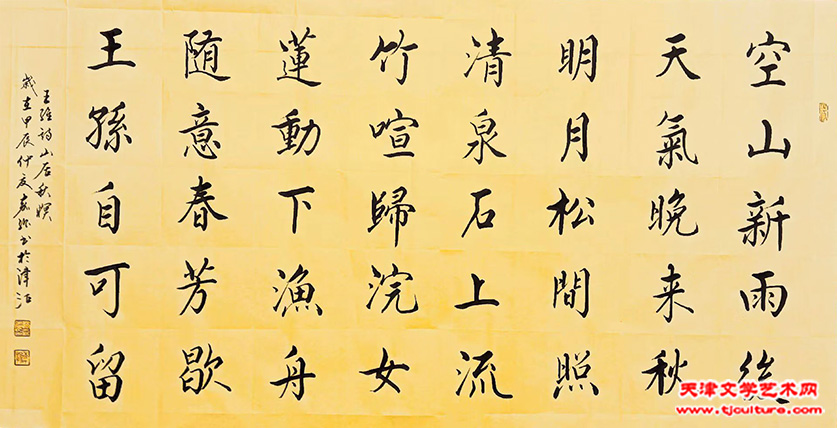 空山新雨後
天氣晚来秋
明月松間照
清泉石上流
竹喧歸浣女
蓮動下漁舟
随意春芳歇
王孫自可留
王維詩山居秋暝
歲在甲辰仲夏 書於津沽
天津文学艺术网
www.tjculture.com